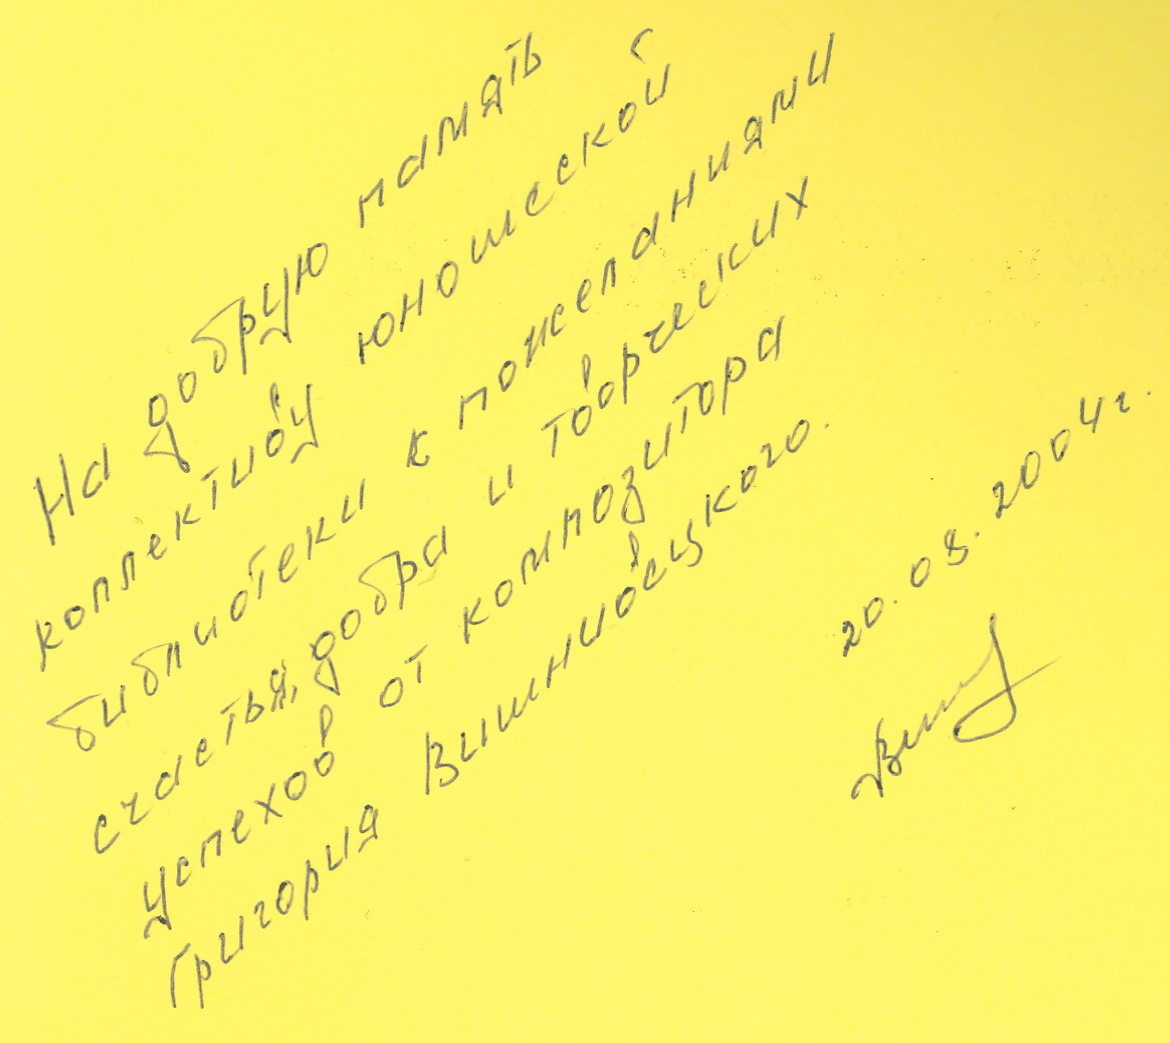 На добрую память
коллективу юношеской
библиотеки с пожеланиями
счастья, добра и творческих
успехов от композитора
Григория Вишнивецкого.
20.08.2004г.